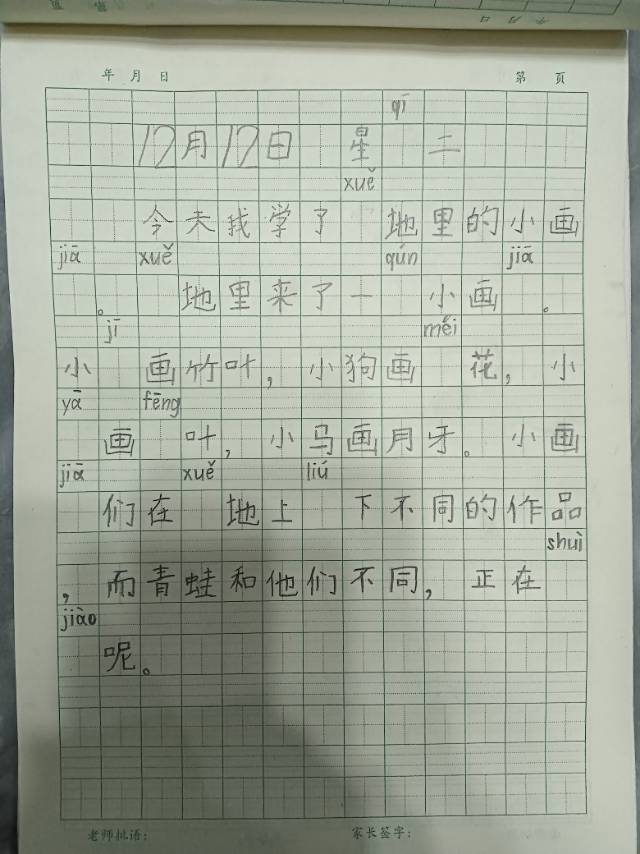 年 月 日 第 页
qī
12月12日 星 二
xuě
今天我学了 地里的小画
jiā xuě qún jiā
。 地里来了一 小画 。
jī měi
小 画竹叶，小狗画 花，小
yā fēng
画 叶，小马画月牙。小画
jiā xuě liú
们在 地上 下不同的作品
shuì
，而青蛙和他们不同，正在
jiào
呢。
老师批语： 家长签字：